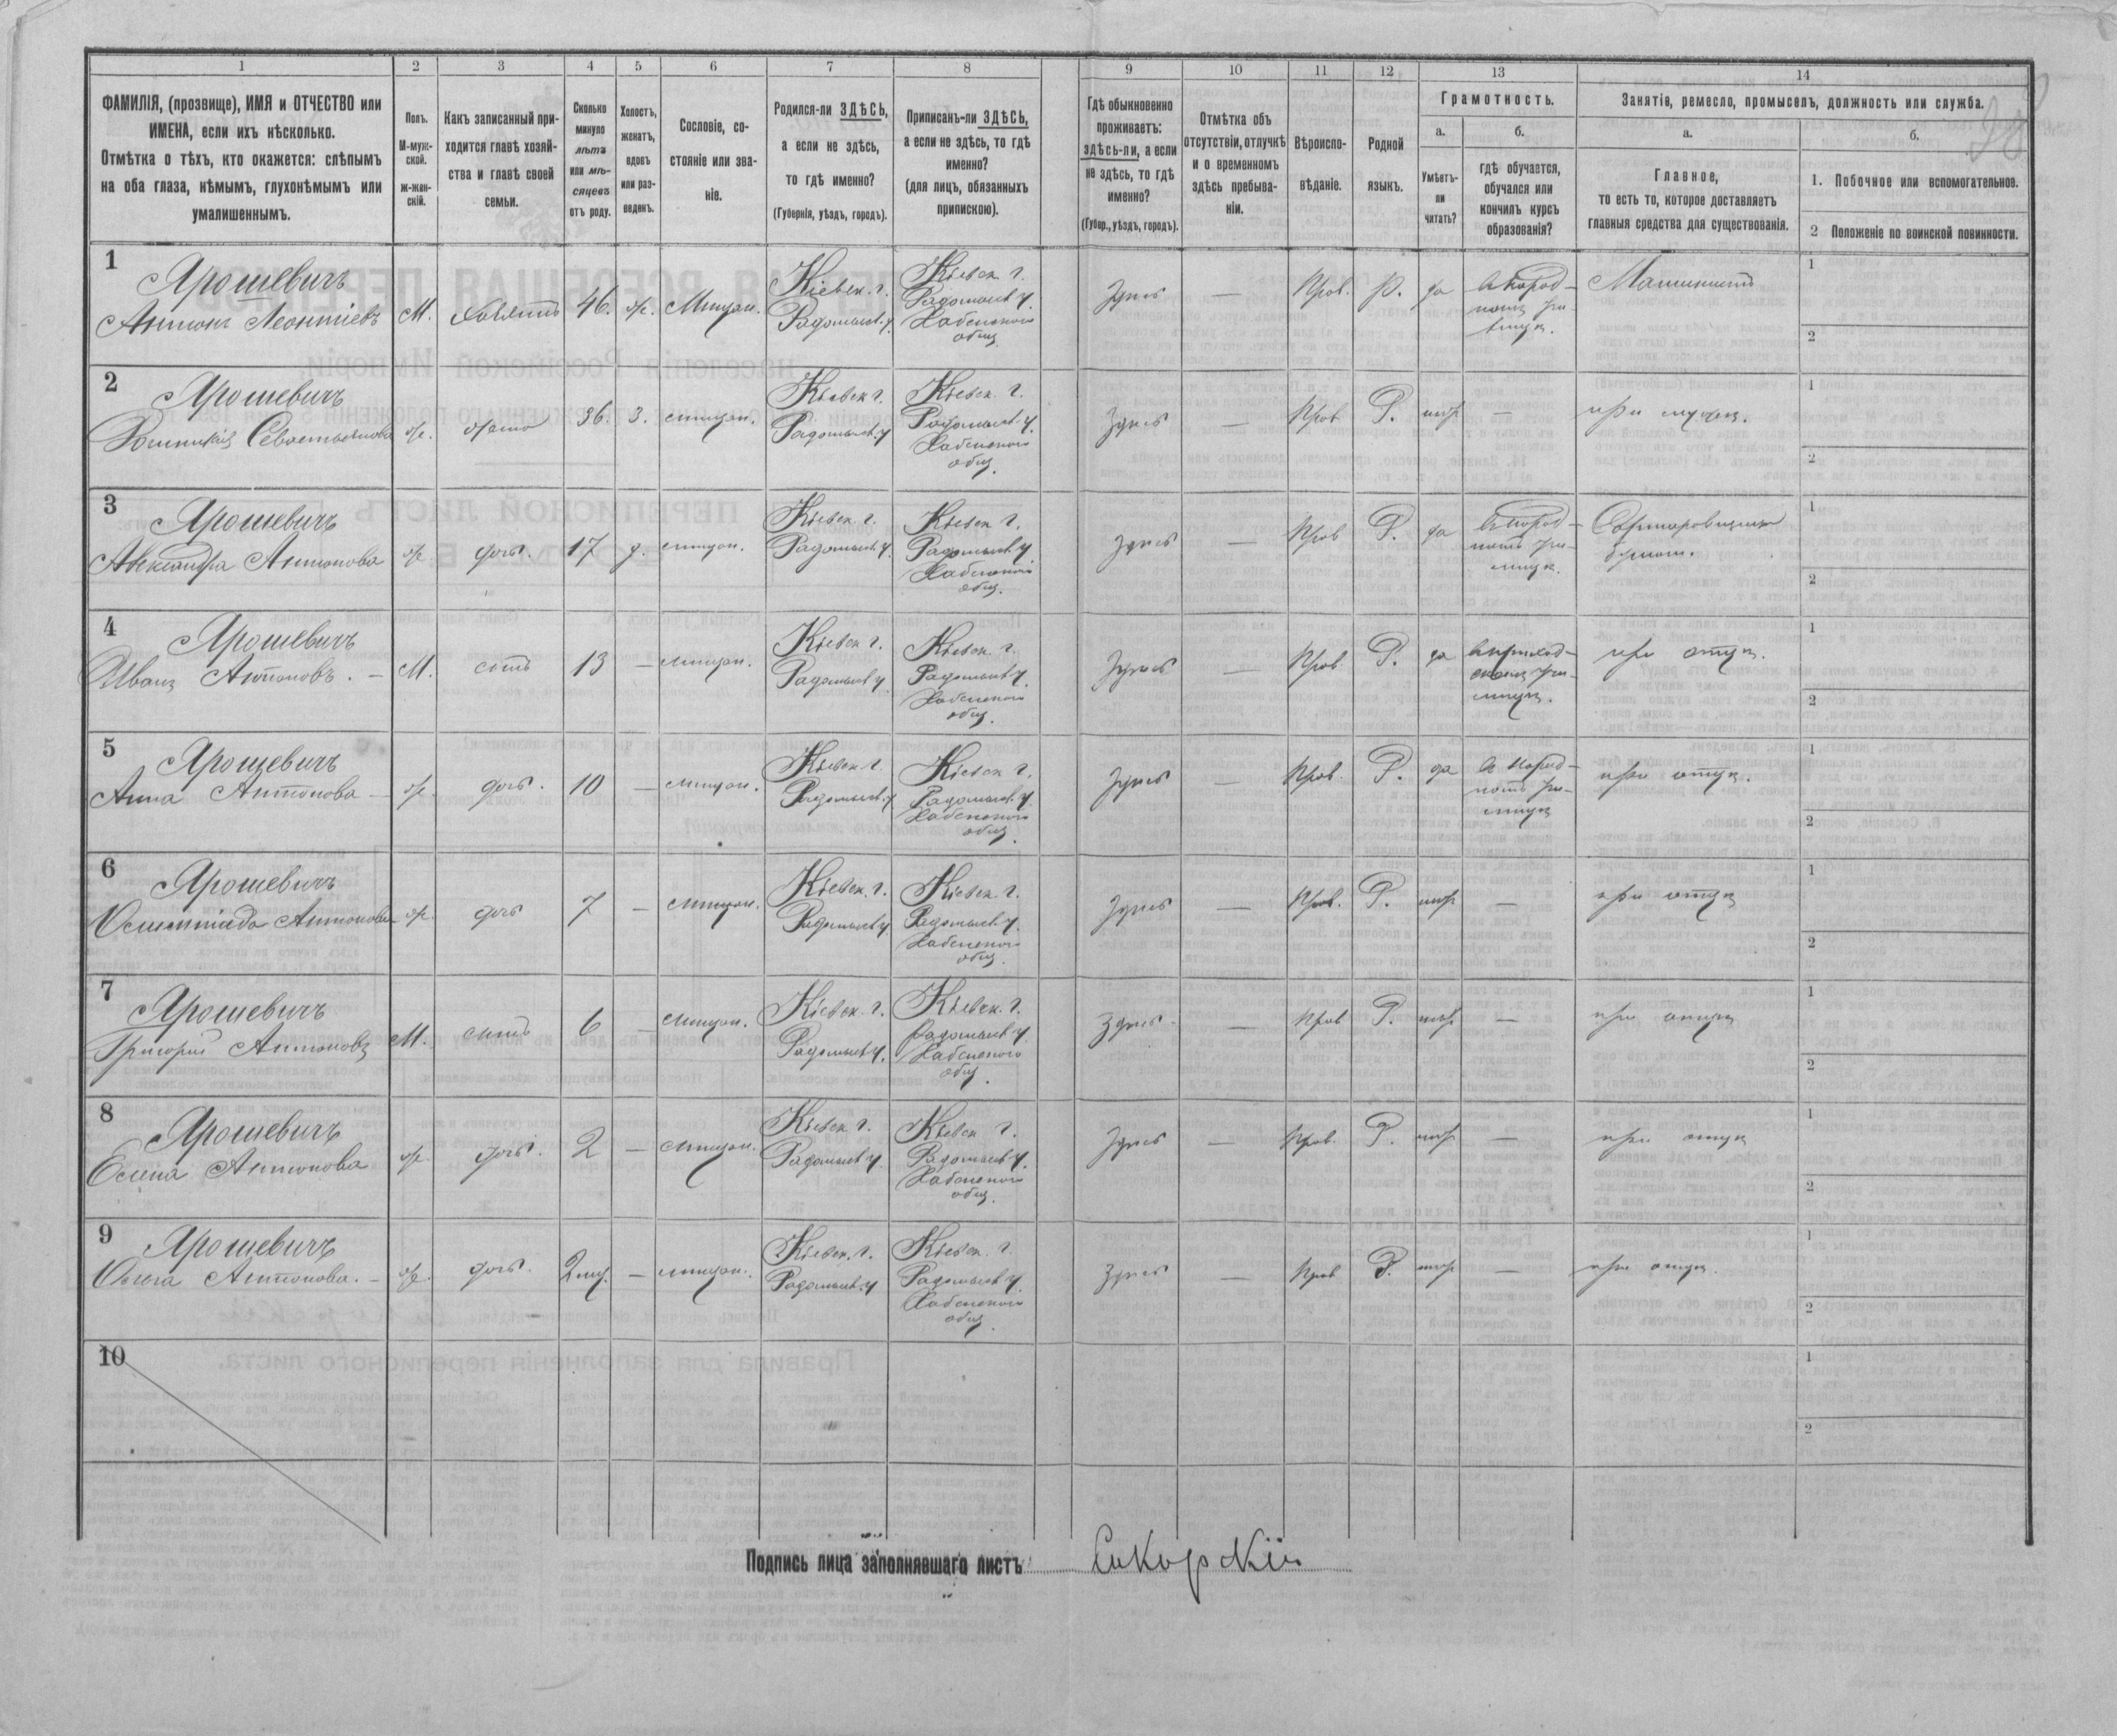 1 2 3 4 5 6 7 8 9 10 11 12 13 14
ФАМИЛІЯ, (прозвище), ИМЯ и ОТЧЕСТВО или
ИМЕНА, если ихъ нѣсколько.
Отмѣтка о тѣхъ, кто окажется: слѣпымъ
на оба глаза, нѣмымъ, глухонѣмымъ или
умалишеннымъ.
Полъ.
М-муж-
ской.
ж-жен-
скій.
Какъ записанный при-
ходится главѣ хозяй-
ства и главѣ своей
семьи.
Сколько
минуло
лѣтъ
или мѣ-
сяцевъ
отъ роду.
Холостъ,
женатъ,
вдовъ
или раз-
веденъ.
Сословіе, со-
стояніе или зва-
ніе.
Родился-ли ЗДѢСЬ,
а если не здѣсь,
то гдѣ именно?
(Губернія, уѣздъ, городъ).
Приписанъ-ли ЗДѢСЬ,
а если не здѣсь, то гдѣ
именно?
(для лицъ, обязанныхъ
припискою).
Гдѣ обыкновенно
проживаетъ:
здѣсь-ли, а если
не здѣсь, то гдѣ
именно?
(Губер., уѣздъ, городъ).
Отмѣтка объ
отсутствіи, отлучкѣ
и о временномъ
здѣсь пребыва-
ніи.
Вѣроиспо-
вѣданіе.
Родной
языкъ.
Грамотность.
а.
Умѣетъ-
ли
читать?
б.
гдѣ обучается,
обучался или
кончилъ курсъ
образованія?
Занятіе, ремесло, промыселъ, должность или служба.
а.
Главное,
то есть то, которое доставляетъ
главныя средства для существованія.
б.
1. Побочное или вспомогательное.
2 Положеніе по воинской повинности.
1
Ярошевичъ
Антонъ Леонтіевъ М. хозяинъ 46. ж. Мѣщан.
Кіевск. г.
Радомысл. у.
Кіевск. г.
Радомысл. у.
Хабенского
общ.
Здѣсь — Прав. Р. да
в народ-
номъ учи-
лищѣ.
Машинистъ
1
2
2
Ярошевичъ
Севастьянова ж. жена 36. З. мѣщан.
Кіевск г.
Радомысл. у
Кіевск. г.
Радомысл. у.
Хабенского
общ.
Здѣсь — Прав Р. нѣт — при мужѣ.
1
2
3
Ярошевичъ
Александра Антонова ж. дочь. 17 д. мѣщан.
Кіевск. г.
Радомысл. у.
Кіевск г.
Радомысл у
Хабенского
общ.
Здѣсь — Прав Р. да
в народ-
номъ учи-
лищѣ.
1
2
4
Ярошевичъ
Иванъ Антоновъ. — М. сынъ 13 — мѣщан.
Кіевск г.
Радомысл у
Кіевск. г.
Радомысл у.
Хабенского
общ.
Здѣсь — Прав Р. да
в приход-
скомъ учи-
лищѣ.
при отцѣ.
1
2
5
Ярошевичъ
Анна Антонова — ж. дочь. 10 — мѣщан.
Кіевск г.
Радомысл. у
Кіевск г.
Радомысл. у
Хабенского
общ.
Здѣсь — Прав. Р. да
в народ-
номъ учи-
лищѣ
при отцѣ.
1
2
6
Ярошевичъ
Антонова ж. дочь 7 — мѣщан.
Кіевск. г.
Радомысл у
Кіевск. г.
Радомысл у.
Хабенского
общ.
Здѣсь — Прав. Р. нѣт — при отцѣ
1
2
7
Ярошевичъ
Григорій Антоновъ М. сынъ 6 — мѣщан.
Кіевск. г.
Радомысл у.
Кіевск. г.
Радомысл у
Хабенского
общ.
Здѣсь — Прав Р. нѣт — при отцѣ
1
2
8
Ярошевичъ
Елена Антонова ж. дочь. 2 — мѣщан.
Кіевск г.
Радомысл у.
Кіевск г.
Радомысл у.
Хабенского
общ.
Здѣсь — Прав. Р. нѣт — при отцѣ
1
2
9
Ярошевичъ
Ольга Антонова. — ж. дочь. 2 мѣс. — мѣщан.
Кіевск. г.
Радомысл. у
Кіевск. г.
Радомысл у.
Хабенского
общ.
Здѣсь — Прав Р. нѣт — при отцѣ.
1
2
10
1
2
Подпись лица заполнявшаго листъ Сикорскій